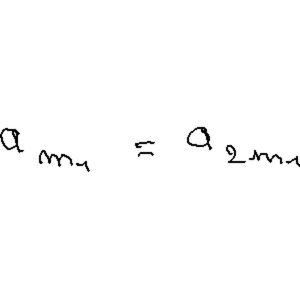 a_{m_1} = a_{2m_1}